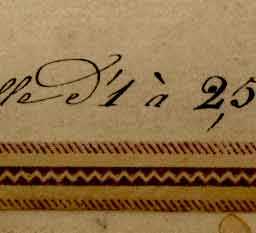 lle d'1 à 2,5